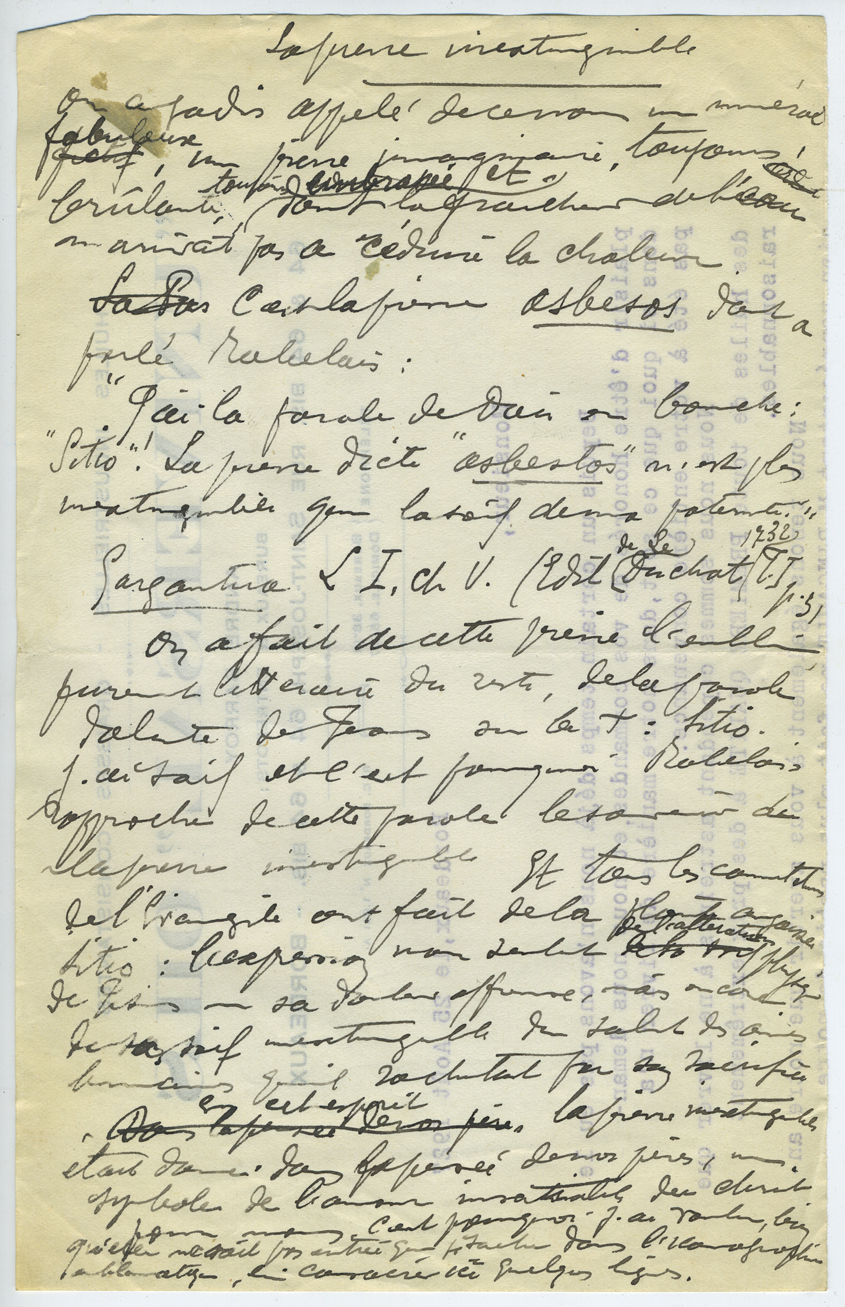 La pierre inextinguible
On a jadis appelé de ce nom un minéral
fabuleux, une pierre imaginaire, toujours
brûlante, dont la fraîcheur de l'eau
n'arrivait pas à réduire la chaleur.
C'est la pierre asbesos dont a
parlé Rabelais :
"J'ai la parole de Dieu en bouche :
"Sitio"! La pierre dicte "asbestos" n'est plus
inextinguible que la soif de ma paternité."
Gargantua L I, ch V. (Edit de Le Duchat 1732 T. I p. 31
On a fait de cette pierre l'emblème
purement littéraire du reste, de la parole
dolente de Jésus sur la + : Sitio.
J'ai soif et c'est pourquoi Rabelais
rapproche de cette parole le souvenir de
la pierre inextinguible. Et tous les commentateurs
de l'Evangile ont fait de la plainte
Sitio : l'expression non seulement de l'altération physique
de Jésus en sa douleur affreuse, mais encore
de sa soif inextinguible du salut des âmes
humaines qu'il rachetait par son sacrifice
En cet esprit la pierre inextinguible
était donc dans la pensée de nos pères, un
symbole de l'amour insatiable du christ
pour nous. C'est pourquoi j'ai voulu, bien
qu'elle ne soit pas entrée dans l'iconographie
emblématique, lui consacrer ici quelques lignes.